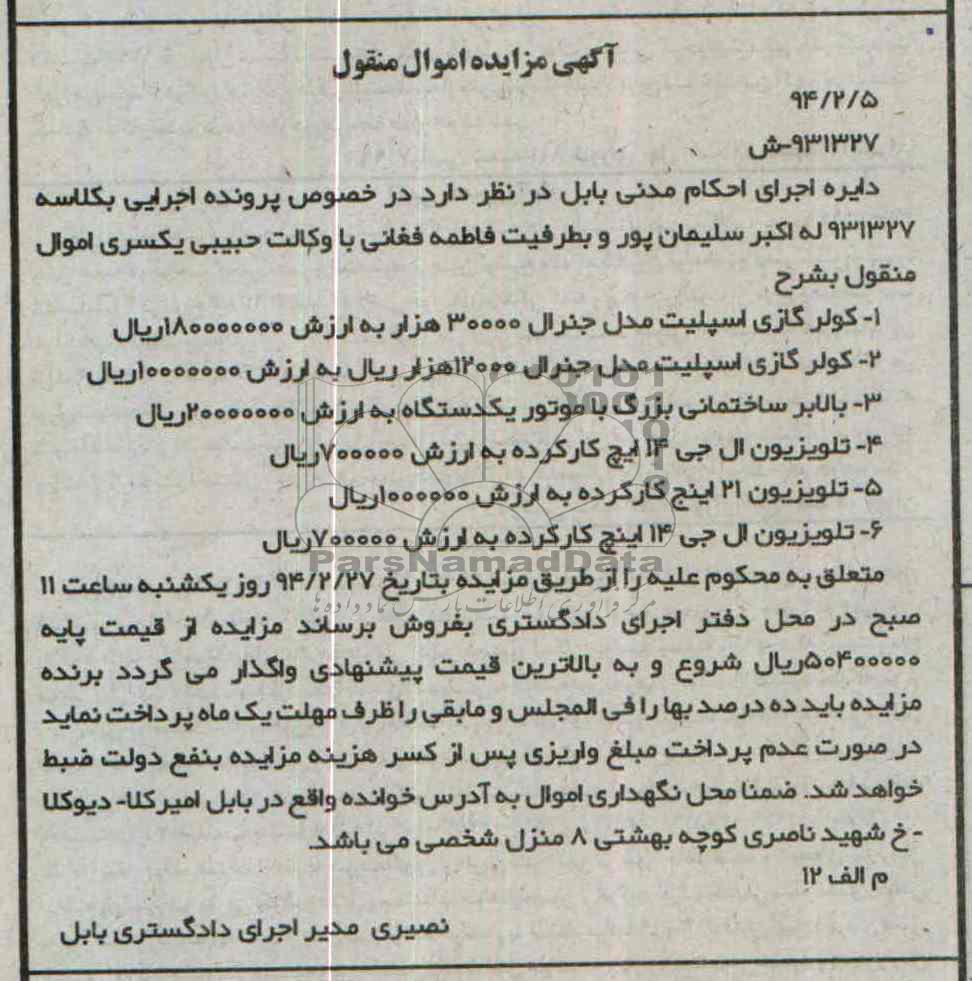 آگهی مزایده اموال منقول
۹۴/۲/۵
۹۳۱۳۲۷-ش
دایره اجرای احکام مدنی بابل در نظر دارد در خصوص پرونده اجرایی بکلاسه
۹۳۱۳۲۷ له اکبر سلیمان پور و بطرفیت فاطمه فغانی با وکالت حبیبی یکسری اموال
منقول بشرح
۱- کولر گازی اسپلیت مدل جنرال ۳۰۰۰۰ هزار به ارزش ۱۸۰۰۰۰۰۰ریال
۲- کولر گازی اسپلیت مدل جنرال ۱۲۰۰۰هزار ریال به ارزش ۱۰۰۰۰۰۰۰ریال
۳- بالابر ساختمانی بزرگ با موتور یکدستگاه به ارزش ۲۰۰۰۰۰۰۰ریال
۴- تلویزیون ال جی ۱۴ ایچ کارکرده به ارزش ۷۰۰۰۰۰ریال
۵- تلویزیون ۲۱ اینچ کارکرده به ارزش ۱۰۰۰۰۰۰ریال
۶- تلویزیون ال جی ۱۴ اینچ کارکرده به ارزش ۷۰۰۰۰۰ریال
ParsNamadData
متعلق به محکوم علیه را از طریق مزایده بتاریخ ۹۴/۲/۲۷ روز یکشنبه ساعت ۱۱
مرکز فرآوری اطلاعات پارس نماد داده ها
صبح در محل دفتر اجرای دادگستری بفروش برساند مزایده از قیمت پایه
۵۰۴۰۰۰۰۰ریال شروع و به بالاترین قیمت پیشنهادی واگذار می گردد برنده
مزایده باید ده درصد بها را فی المجلس و مابقی را ظرف مهلت یک ماه پرداخت نماید
در صورت عدم پرداخت مبلغ واریزی پس از کسر هزینه مزایده بنفع دولت ضبط
خواهد شد. ضمنا محل نگهداری اموال به آدرس خوانده واقع در بابل امیرکلا- دیوکلا
- خ شهید ناصری کوچه بهشتی ۸ منزل شخصی می باشد.
م الف ۱۲
نصیری مدیر اجرای دادگستری بابل